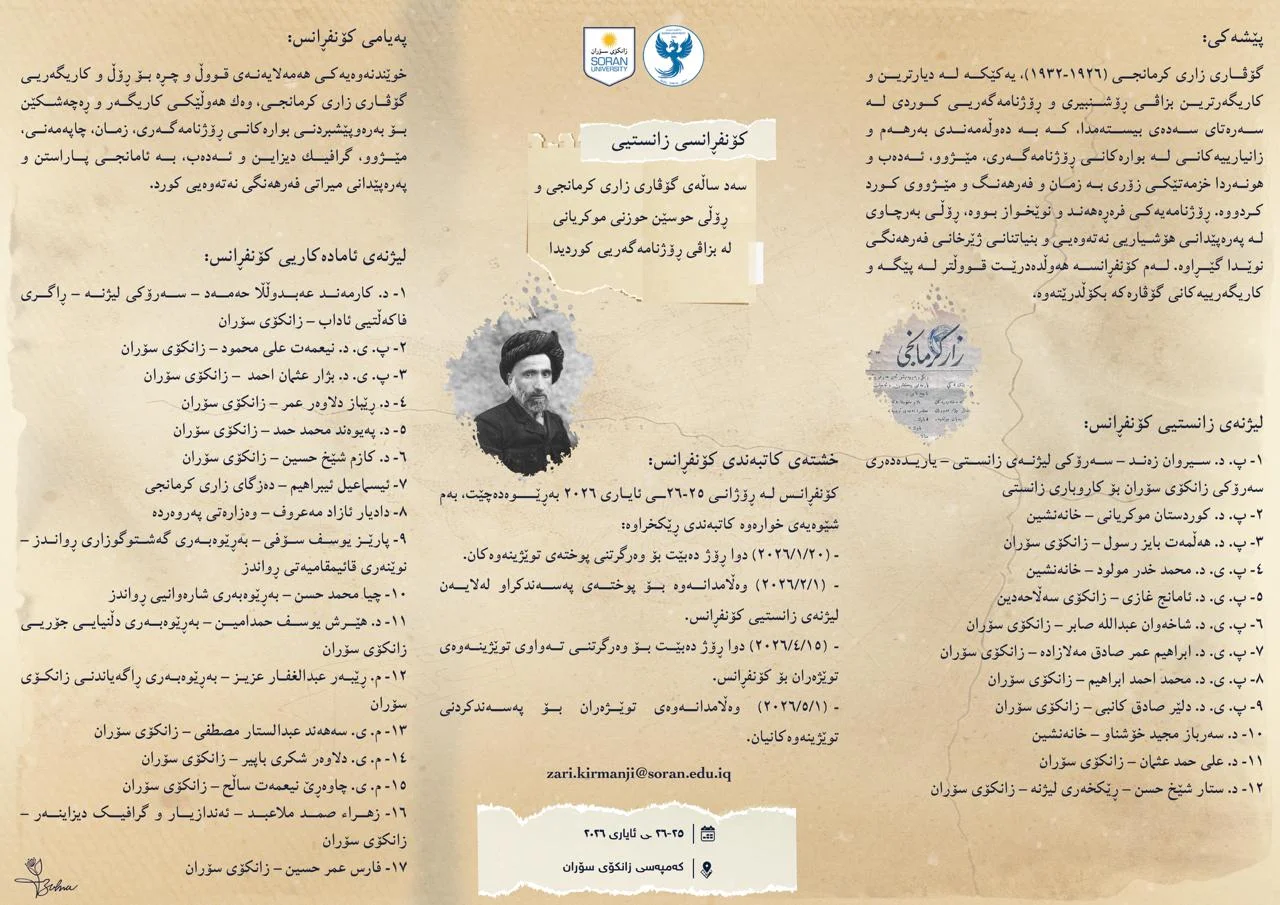 پێشەکی:
گۆڤاری زاری کرمانجی (١٩٢٦-١٩٣٢)، یەکێکە لە دیارترین و
کاریگەرترین بزاڤی ڕۆشنبیری و ڕۆژنامەگەریی کوردی لە
سەرەتای سەدەی بیستەمدا، کە بە دەوڵەمەندی بەرهەم و
زانیارییەکانی لە بوارەکانی ڕۆژنامەگەری، مێژوو، ئەدەب و
هونەردا خزمەتێکی زۆری بە زمان و فەرهەنگ و مێژووی کورد
کردووە. ڕۆژنامەیەکی فرەڕەهەند و نوێخواز بووە، ڕۆڵی بەرچاوی
لە پەرەپێدانی هۆشیاریی نەتەوەیی و بنیاتنانی ژێرخانی فەرهەنگی
نوێدا گێڕاوە. لەم کۆنفرانسە هەوڵدەدرێت قووڵتر لە پێگە و
کاریگەرییەکانی گۆڤارەکە بکۆڵدرێتەوە.
زاری کرمانجی
لیژنەی زانستیی کۆنفڕانس:
١- پ. د. سیروان زەند – سەرۆکی لیژنەی زانستی – یاریدەدەری
سەرۆکی زانکۆی سۆران بۆ کاروباری زانستی
٢- پ. د. کوردستان موکریانی – خانەنشین
٣- پ. د. هەڵمەت بایز رسول – زانکۆی سۆران
٤- پ. ی. د. محمد خدر مولود – خانەنشین
٥- پ. ی. د. ئامانج غازی – زانکۆی سەلاحەدین
٦- پ. ی. د. شاخەوان عبداللە صابر – زانکۆی سۆران
٧- پ. ی. د. ابراهیم عمر صادق مەلازادە – زانکۆی سۆران
٨- پ. ی. د. محمد احمد ابراهیم – زانکۆی سۆران
٩- پ. ی. د. دلێر صادق کانبی – زانکۆی سۆران
١٠- د. سەرباز مجید خۆشناو – خانەنشین
١١- د. علی حمد عثمان – زانکۆی سۆران
١٢- د. ستار شێخ حسن – ڕێکخەری لیژنە – زانکۆی سۆران
زانکۆی سۆران
SORAN
UNIVERSITY
کۆنفڕانسی زانستیی
سەد ساڵەی گۆڤاری زاری کرمانجی و
ڕۆڵی حوسێن حوزنی موکریانی
لە بزاڤی ڕۆژنامەگەریی کوردیدا
خشتەی کاتبەندی کۆنفڕانس:
کۆنفرانس لە ڕۆژانی ٢٥-٢٦ـی ئایاری ٢٠٢٦ بەڕێوەدەچێت، بەم
شێوەیەی خوارەوە کاتبەندی ڕێکخراوە:
- (٢٠٢٦/١/٢٠) دوا ڕۆژ دەبێت بۆ وەرگرتنی پوختەی توێژینەوەکان.
- (٢٠٢٦/٢/١) وەڵامدانەوە بۆ پوختەی پەسەندکراو لەلایەن
لیژنەی زانستیی کۆنفرانس.
- (٢٠٢٦/٤/١٥) دوا ڕۆژ دەبێت بۆ وەرگرتنی تەواوی توێژینەوەی
توێژەران بۆ کۆنفرانس.
- (٢٠٢٦/٥/١) وەڵامدانەوەی توێژەران بۆ پەسەندکردنی
توێژینەوەکانیان.
zari.kirmanji@soran.edu.iq
٢٥-٢٦ ی ئایاری ٢٠٢٦
کەمپەسی زانکۆی سۆران
پەیامی کۆنفڕانس:
خوێندنەوەیەکی هەمەلایەنەی قووڵ و چڕە بۆ ڕۆڵ و کاریگەریی
گۆڤاری زاری کرمانجی، وەک هەوڵێکی کاریگەر و ڕەچەشکێن
بۆ بەرەوپێشبردنی بوارەکانی ڕۆژنامەگەری، زمان، چاپەمەنی،
مێژوو، گرافیک دیزاین و ئەدەب، بە ئامانجی پاراستن و
پەرەپێدانی میراتی فەرهەنگی نەتەوەیی کورد.
لیژنەی ئامادەکاریی کۆنفڕانس:
١- د. کارمەند عەبدوڵڵا حەمەد – سەرۆکی لیژنە – ڕاگری
فاکەڵتیی ئاداب – زانکۆی سۆران
٢- پ. ی. د. نیعمەت علی محمود – زانکۆی سۆران
٣- پ. ی. د. بژار عثمان احمد – زانکۆی سۆران
٤- د. ڕێباز دلاوەر عمر – زانکۆی سۆران
٥- د. پەیوەند محمد حمد – زانکۆی سۆران
٦- د. کازم شێخ حسین – زانکۆی سۆران
٧- ئیسماعیل ئیبراهیم – دەزگای زاری کرمانجی
٨- دادیار ئازاد مەعروف – وەزارەتی پەروەردە
٩- پارێز یوسف سۆفی – بەڕێوەبەری گەشتوگوزاری ڕواندز –
نوێنەری قائیمقامیەتی ڕواندز
١٠- چیا محمد حسن – بەڕێوەبەری شارەوانیی ڕواندز
١١- د. هێرش یوسف حمدامین – بەڕێوەبەری دڵنیایی جۆریی
زانکۆی سۆران
١٢- م. ڕێبەر عبدالغفار عزیز – بەڕێوەبەری ڕاگەیاندنی زانکۆی
سۆران
١٣- م. ی. سەهەند عبدالستار مصطفی – زانکۆی سۆران
١٤- م. ی. دلاوەر شکری باپیر – زانکۆی سۆران
١٥- م. ی. چاوەڕێ نیعمەت ساڵح – زانکۆی سۆران
١٦- زهراء صمد ملاعبد – ئەندازیار و گرافیک دیزاینەر –
زانکۆی سۆران
١٧- فارس عمر حسین – زانکۆی سۆران